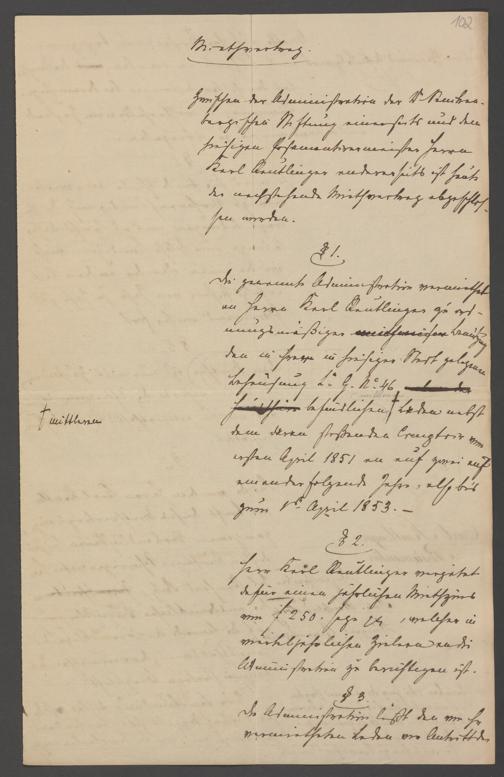 102
Miethvertrag.
Zwischen der Administration der Dr Senken-
bergischen Stiftung einerseits und dem
hiesigen Posamentiermeister Herrn
Karl Reutlinger andererseits ist heute
der nachstehende Miethvertrag abgeschlos-
sen worden.
§ 1.
Die genannte Administration vermiethet
an Herrn Karl Reutlinger zu ord-
nungsmäßiger Benutzung
den in ihrer in hiesiger Stadt gelegenen
Behausung La. G. No. 46
befindlichen † Laden nebst
† mittleren
dem daran stoßenden Comptoir vom
ersten April 1851 an auf zwei auf
einander folgende Jahre, also bis
zum 1ten April 1853. –
§ 2.
Herr Karl Reutlinger vergütet
dafür einen jährlichen Miethzins
von f 250. , welcher in
vierteljährlichen Zielern an die
Administration zu berichtigen ist.
§ 3.
Die Administration läßt den von ihr
vermietheten Laden vor Antritt des